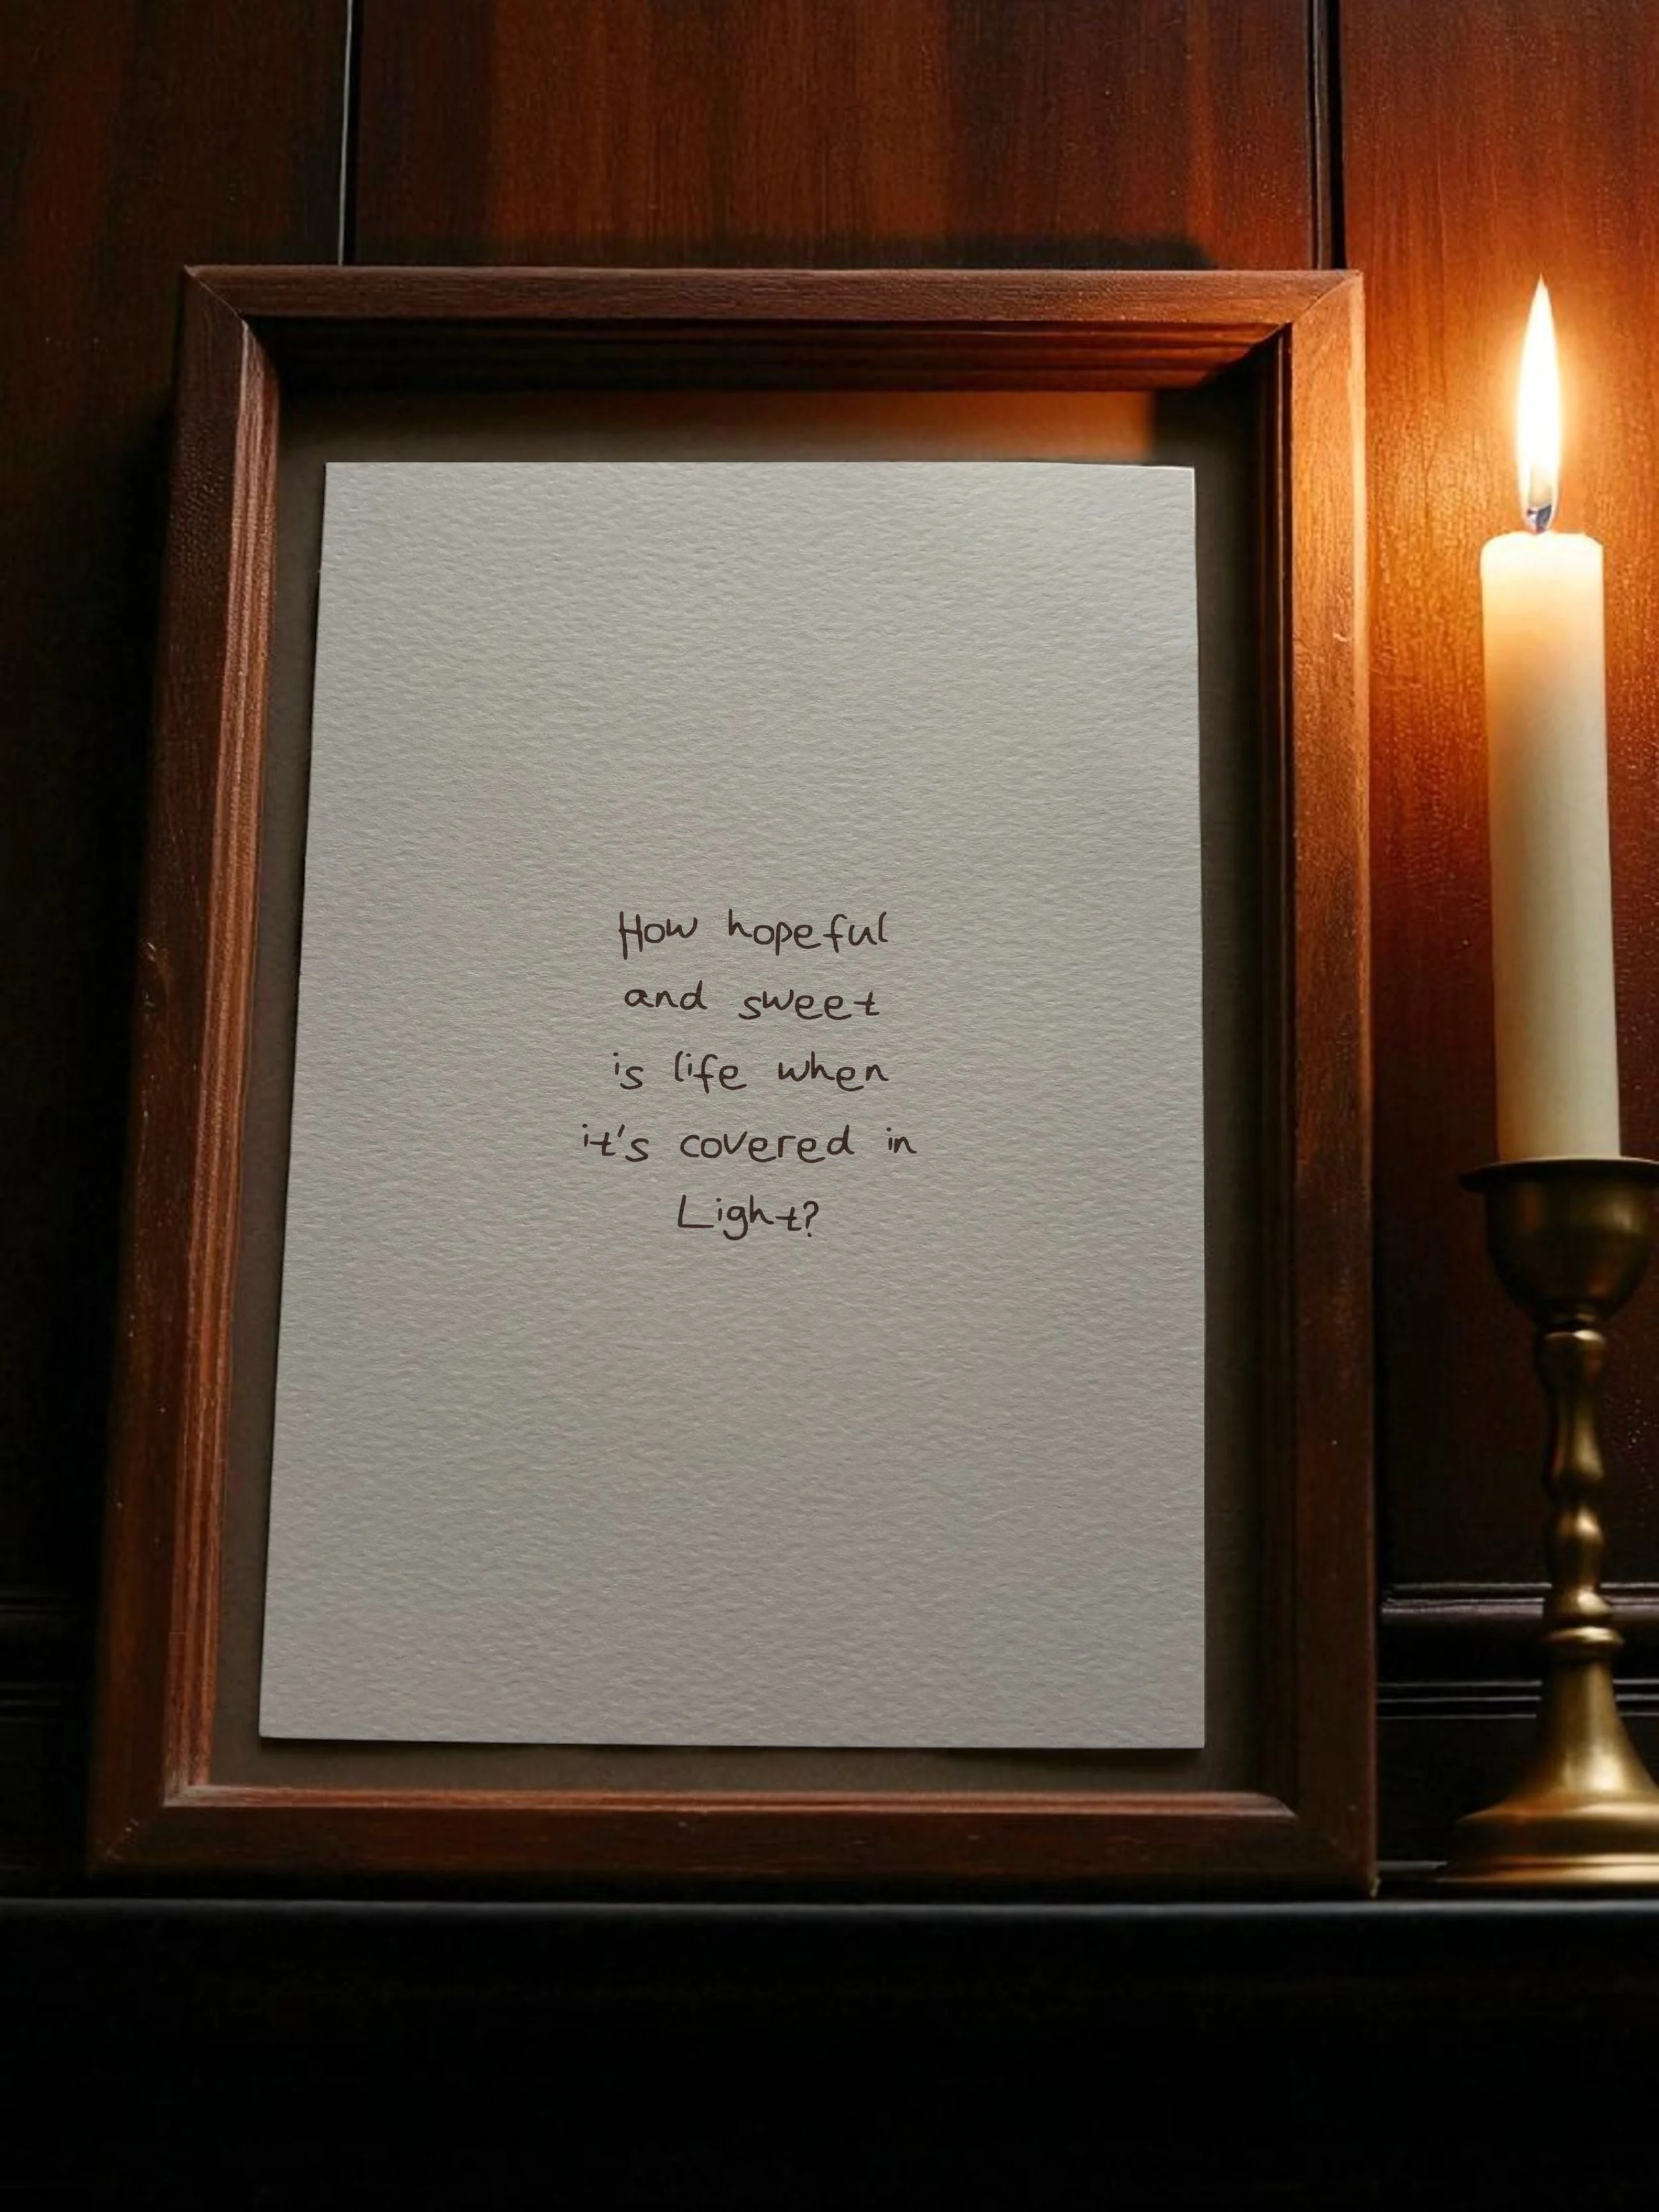 How hopeful
and sweet
is life when
it's covered in
Light?